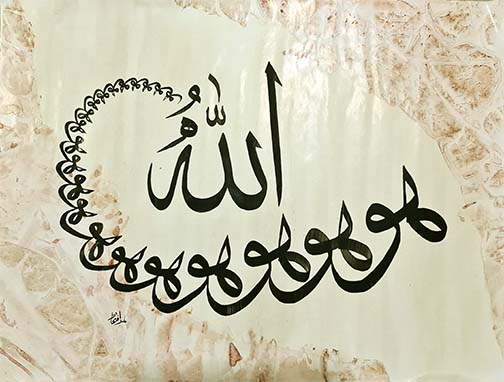 اللّٰهُ
هو هو هو هو هو هو هو هو هو هو هو هو هو هو هو هو هو هو هو هو